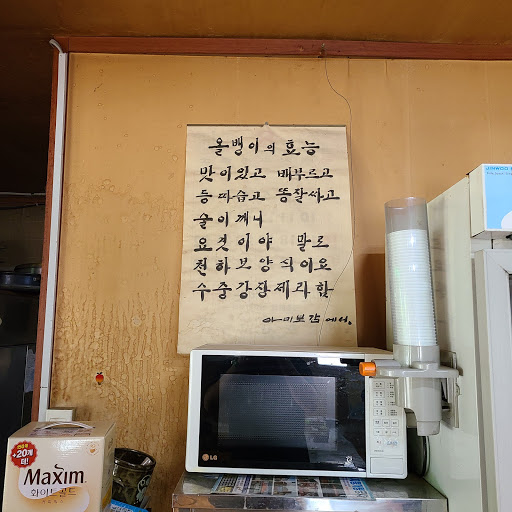 올뱅이의 효능
맛이있고 배부르고
등따습고 똥잘싸고
술이깨니
요것이야 말로
천하보양식이요
수중강장제라함
아미보감에서.
LG
+20개
더!
Maxim
화이트골드